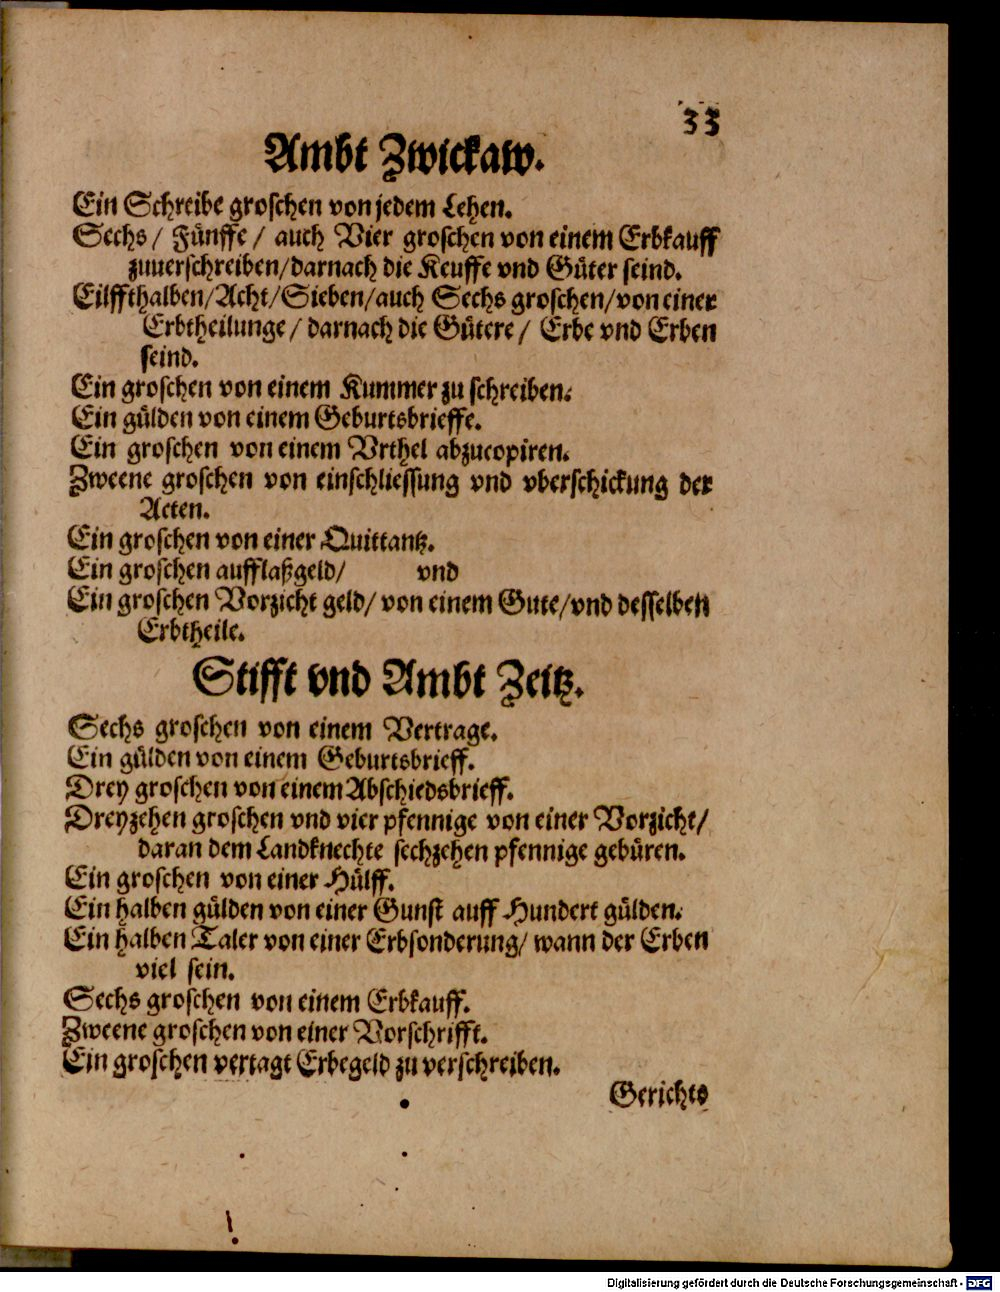 33
Ambt Zwickaw.
Ein Schreibe groschen von jedem Lehen.
Sechs / Fünffe / auch Vier groschen von einem Erbkauff
zuuerschreiben/darnach die Keuffe vnd Güter seind.
Eilffthalben/Acht/Sieben/auch Sechs groschen/von einer
Erbtheilunge / darnach die Gütere / Erbe vnd Erben
seind.
Ein groschen von einem Kummer zu schreiben.
Ein gülden von einem Geburtsbrieffe.
Ein groschen von einem Vrthel abzucopiren.
Zweene groschen von einschliessung vnd vberschickung der
Acten.
Ein groschen von einer Quittantz.
Ein groschen aufflaßgeld/ vnd
Ein groschen Vorzicht geld/ von einem Gute/vnd desselben
Erbtheile.
Stifft vnd Ambt Zeitz.
Sechs groschen von einem Vertrage.
Ein gülden von einem Geburtsbrieff.
Drey groschen von einem Abschiedsbrieff.
Dreyzehen groschen vnd vier pfennige von einer Vorzicht/
daran dem Landknechte sechzehen pfennige gebüren.
Ein groschen von einer Hülff.
Ein halben gülden von einer Gunst auff Hundert gülden.
Ein halben Taler von einer Erbsonderung/ wann der Erben
viel sein.
Sechs groschen von einem Erbkauff.
Zweene groschen von einer Vorschrifft.
Ein groschen vertagt Erbegeld zu verschreiben.
Gerichts
Digitalisierung gefördert durch die Deutsche Forschungsgemeinschaft - DFG